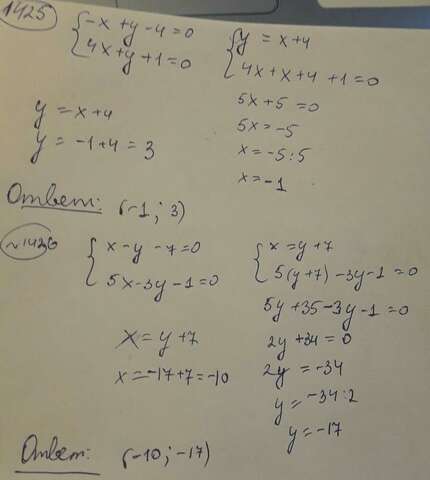 1425
-x + y - 4 = 0
4x + y + 1 = 0
y = x + 4
4x + x + 4 + 1 = 0
5x + 5 = 0
5x = -5
x = -5 : 5
x = -1
y = x + 4
y = -1 + 4 = 3
Ответ: (-1; 3)
№1426
x - y - 7 = 0
5x - 3y - 1 = 0
x = y + 7
5(y + 7) - 3y - 1 = 0
5y + 35 - 3y - 1 = 0
2y + 34 = 0
2y = -34
y = -34 : 2
y = -17
x = y + 7
x = -17 + 7 = -10
Ответ: (-10; -17)